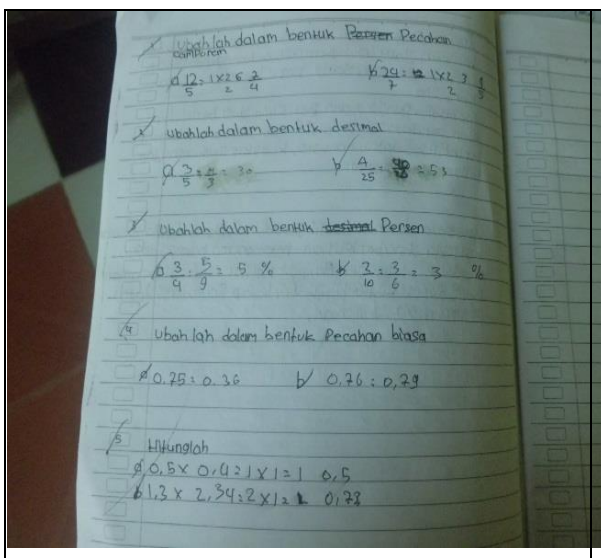 1 Ubahlah dalam bentuk Persen Pecahan
campuran
a 12/5 = 1x2 6 2/4 b 24/7 = 1x2 3 1/5
2 Ubahlah dalam bentuk desimal
a 3/5 = 30 b 4/25 = = 53
3 Ubahlah dalam bentuk desimal Persen
a 3/4 = 5/9 = 5 % b 3/10 = 3/6 = 3 %
4 Ubah lah dalam bentuk Pecahan biasa
a 0.75 = 0.36 b 0.76 = 0,79
5 Hitunglah
a 0,5 x 0,4 = 1 x 1 = 1 0,5
b 1,3 x 2,34 = 2 x 1 = 0,73